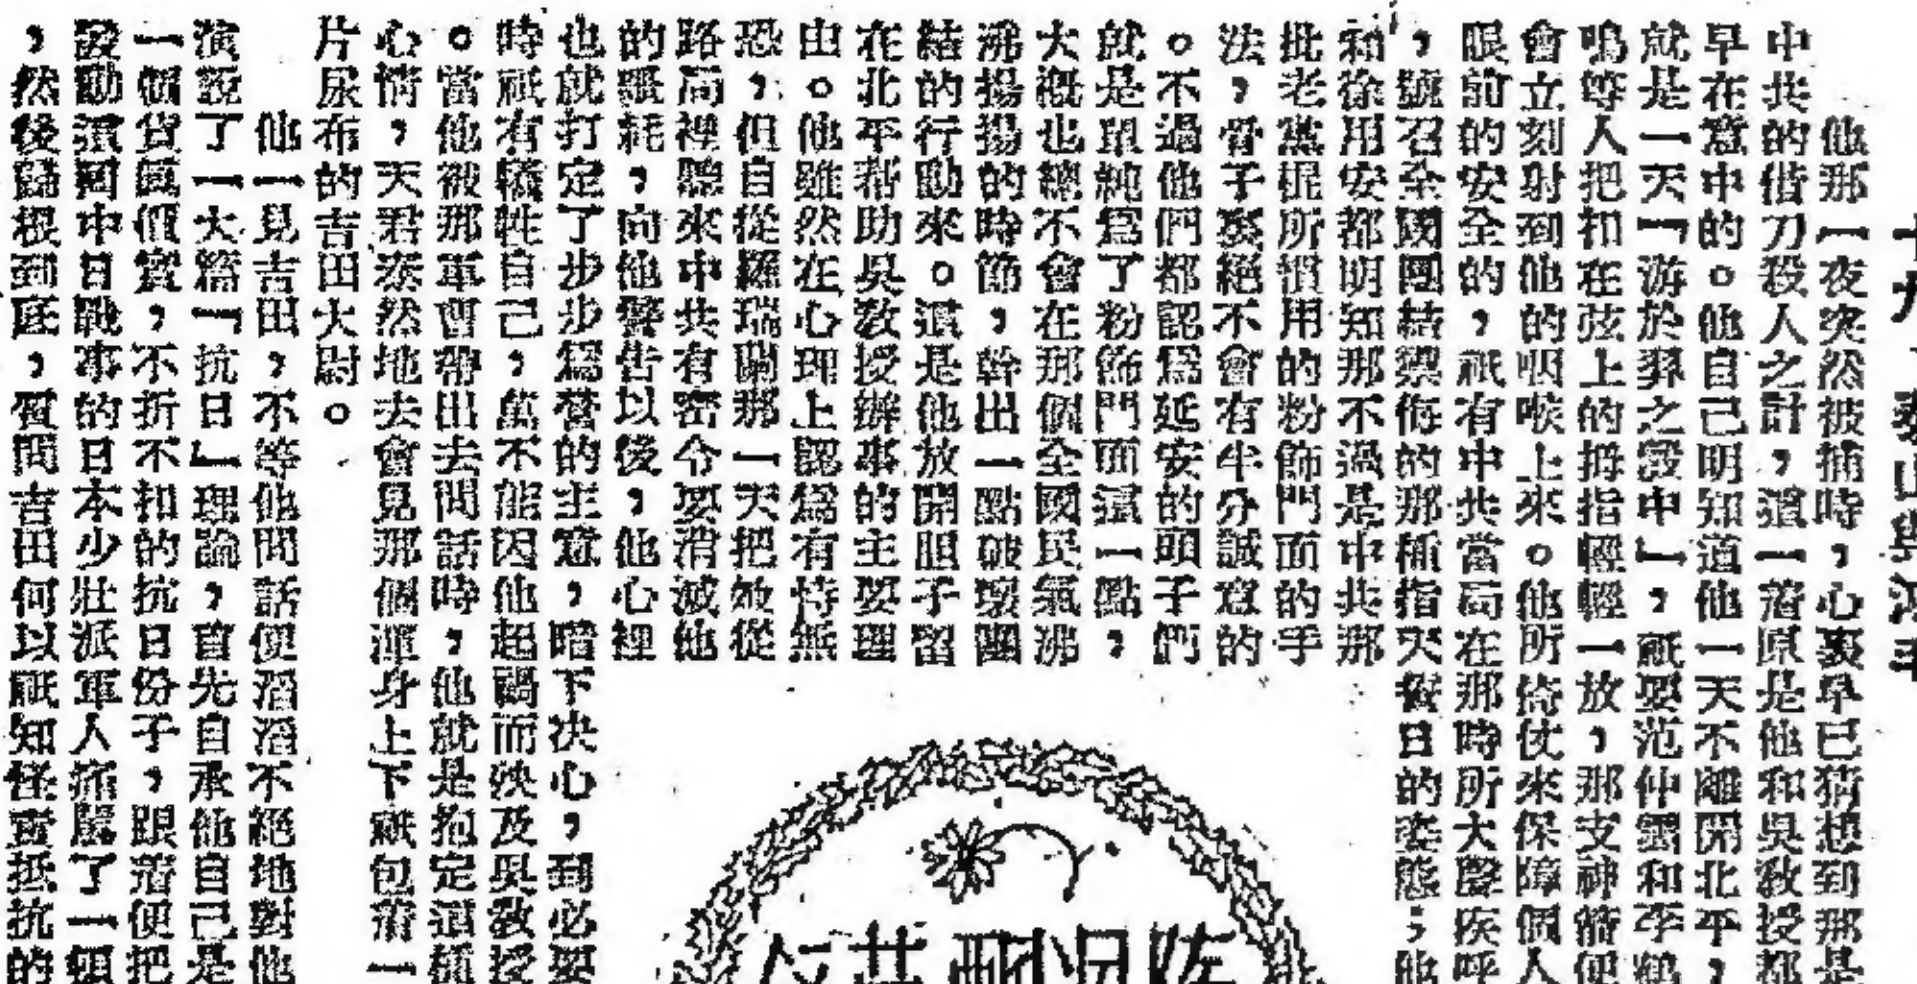 十九、泰山與鴻毛
他那一夜突然被捕時，心裏早已猜想到那是
中共的借刀殺人之計，這一着原是他和吳敎授都
早在意中的。他自己明知道他一天不離開北平，
就是一天「游於羿之彀中」，祇要范仲雲和李鶴
鳴等人把扣在弦上的拇指輕輕一放，那支神箭便
會立刻射到他的咽喉上來。他所倚仗來保障個人
眼前的安全的，祇有中共當局在那時所大聲疾呼
，號召全國團結禦侮的那種指天誓日的姿態；他
和徐用安都明知那不過是中共那
批老黨棍所慣用的粉飾門面的手
法，骨子裏絕不會有半分誠意的
。不過他們都認爲延安的頭子們
就是單純爲了粉飾門面這一點，
大槪也總不會在那個全國民氣沸
沸揚揚的時節，幹出一點破壞團
結的行動來。這是他放開胆子留
在北平帮助吳敎授辦事的主要理
由。他雖然在心理上認爲有恃無
恐，但自從羅瑞蘭那一天把她從
路局裡聽來中共有密令要消滅他
的噩耗，向他警告以後，他心裡
也就打定了步步爲營的主意，暗下決心，到必要
時祇有犧牲自己，萬不能因他起禍而殃及吳敎授
。當他被那軍曹帶出去問話時，他就是抱定這種
心情，天君泰然地去會見那個渾身上下祇包着一
片尿布的吉田大尉。
他一見吉田，不等他問話便滔滔不絕地對他
演說了一大篇「抗日」理論，首先自承他自己是
一個貨眞價實，不折不扣的抗日份子，跟着便把
發動這囘中日戰事的日本少壯派軍人痛罵了一頓
，然後歸根到底，質問吉田何以祇知怪責抵抗的